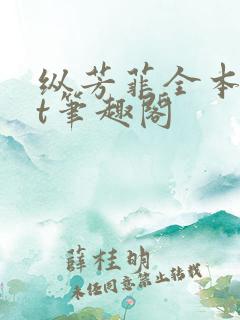 纵芳菲全本
t笔趣阁
薛桂明
未经同意禁止转载